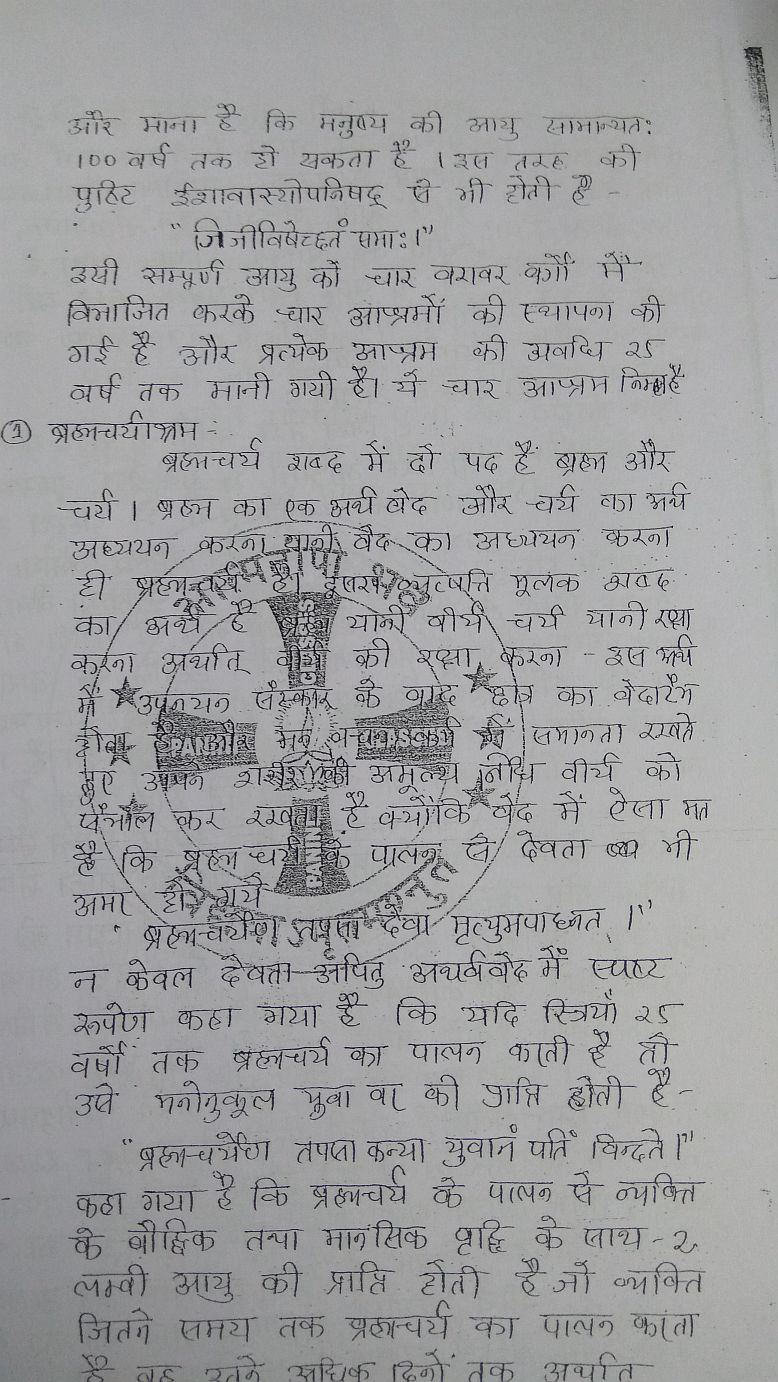 और माना है कि मनुष्य की आयु सामान्यत:
100 वर्ष तक हो सकता है । इस तरह की
पुष्टि ईशावास्योपनिषद् से भी होती है -
"जिजीविषेच्छतं समाः।"
इसी सम्पूर्ण आयु को चार बराबर वर्गों में
विभाजित करके चार आश्रमों की स्थापना की
गई है और प्रत्येक आश्रम की अवधि २५
वर्ष तक मानी गयी है। ये चार आश्रम निम्न है
① ब्रह्मचर्याश्रम -
ब्रह्मचर्य शब्द में दो पद हैं ब्रह्म और
चर्य । ब्रह्म का एक अर्थ वेद और चर्य का अर्थ
अध्ययन करना यानी वेद का अध्ययन करना
ही ब्रह्मचर्य है। इसका व्युत्पत्ति मूलक शब्द
का अर्थ है ब्रह्म यानी वीर्य चर्य यानी रक्षा
करना अर्थात् वीर्य की रक्षा करना - इस अर्थ
में उपनयन संस्कार के बाद छात्र का वेदारंभ
होता है और मन वचन कर्म में समानता रखते
हुए अपने शरीर की अमूल्य निधि वीर्य को
संभाल कर रखता है क्योंकि वेद में ऐसा मत
है कि ब्रह्मचर्य के पालन से देवता भी
अमर हो गये
"ब्रह्मचर्येण तपसा देवा मृत्युमपाघ्नत ।"
न केवल देवता अपितु अथर्ववेद में स्पष्ट
रूपेण कहा गया है कि यदि स्त्रियाँ २५
वर्षों तक ब्रह्मचर्य का पालन करती है तो
उसे मनोनुकूल युवा वर की प्राप्ति होती है -
"ब्रह्मचर्येण तपसा कन्या युवानं पतिं विन्दते।"
कहा गया है कि ब्रह्मचर्य के पालन से व्यक्ति
के बौद्धिक तथा मानसिक वृद्धि के साथ - २
लम्बी आयु की प्राप्ति होती है जो व्यक्ति
जितने समय तक ब्रह्मचर्य का पालन करता
है वह उतने अधिक दिनों तक अर्थात